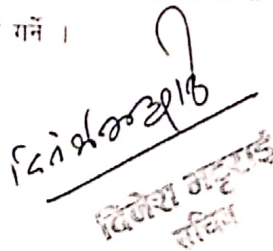 गर्ने ।
दिनेश भट्टराई
सचिव